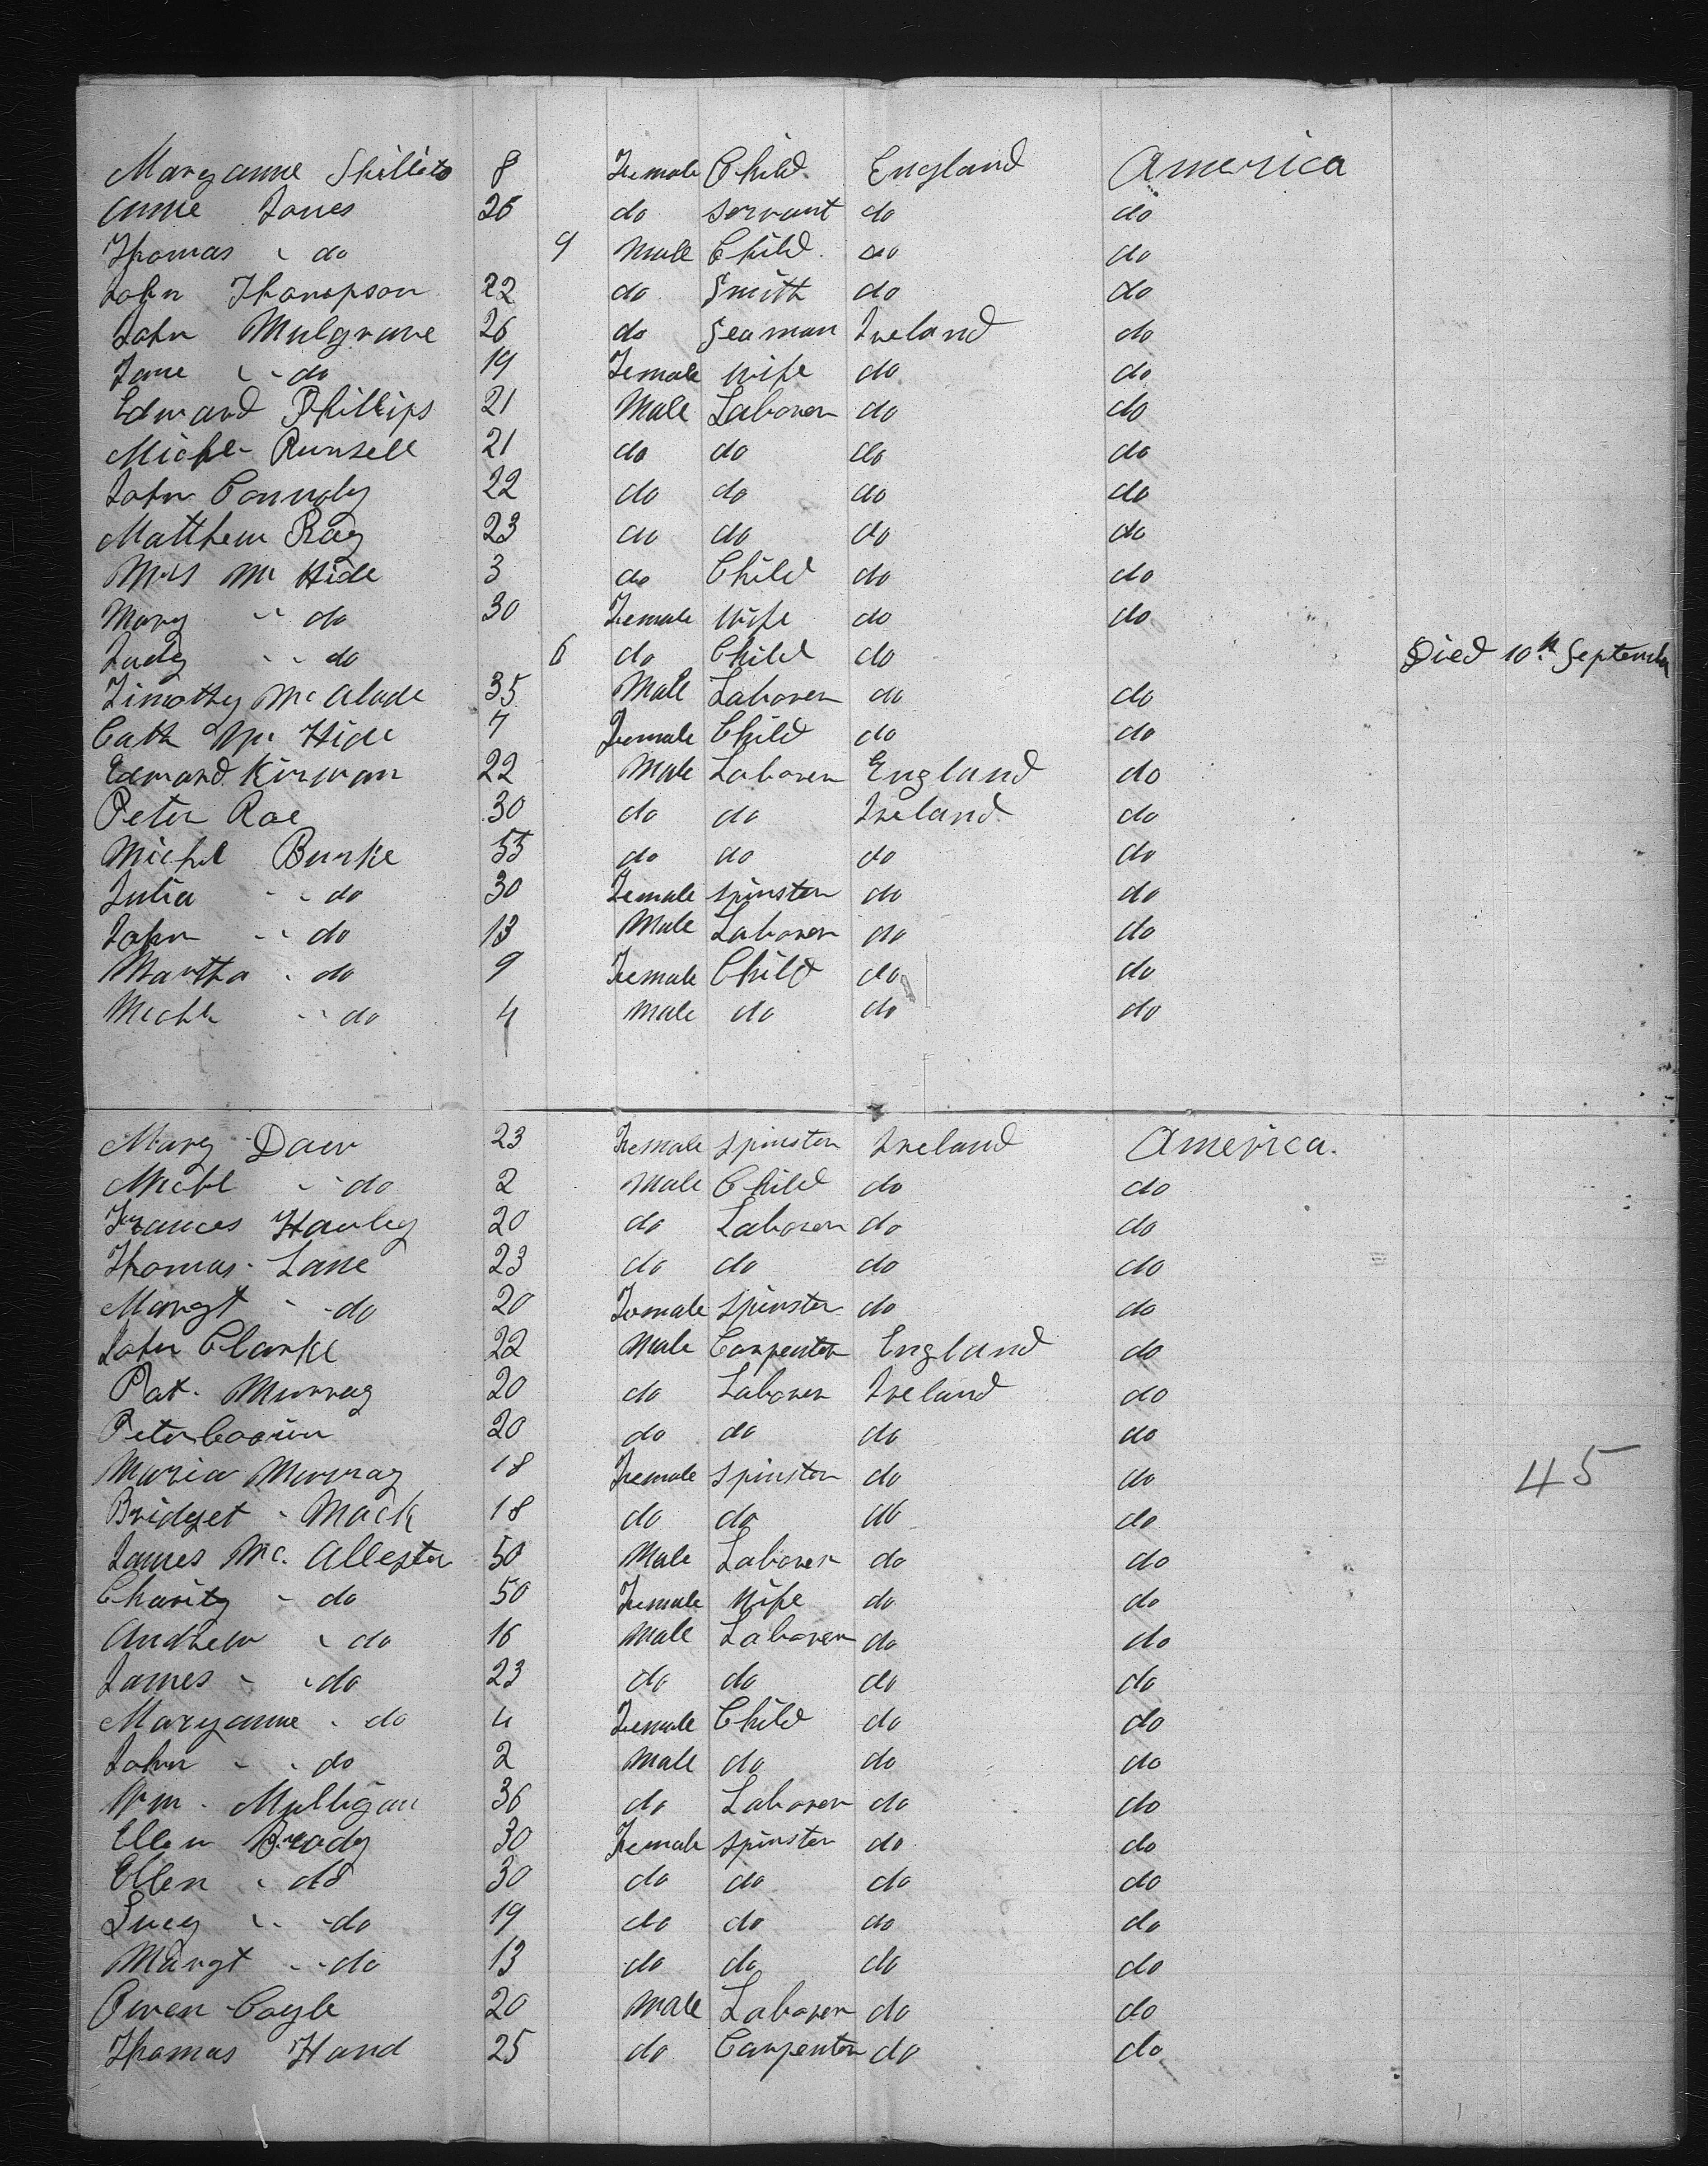 Maryanne Shillito 8 Female Child England America
Anne Jones 26 do Servant do do
Thomas " do 9 Male Child do do
John Thompson 22 do Smith do do
John Mulgrave 26 do Seaman Ireland do
Jane " do 19 Female Wife do do
Edward Phillips 21 Male Laborer do do
Michl Runsell 21 do do do do
John Connoly 22 do do do do
Matthew Ray 23 do do do do
Mc Hide 3 do Child do do
Mary " do 30 Female Wife do do
Judy " do 6 do Child do Died 10th September
Timothy Mc Alade 35 Male Laborer do do
Cath Mc Hide 7 Female Child do do
Edward Kirwan 22 Male Laborer England do
Peter Roe 30 do do Ireland do
Michl Burke 55 do do do do
Julia " do 30 Female Spinster do do
John " do 13 Male Laborer do do
Martha " do 9 Female Child do do
Michl " do 4 Male do do do
Mary Daw 23 Female Spinster Ireland America.
Michl " do 2 Male Child do do
Frances Hanley 20 do Laborer do do
Thomas Lane 23 do do do do
Margt " do 20 Female Spinster do do
John Clarke 22 Male Carpenter England do
Pat. Murray 20 do Laborer Ireland do
Peter 20 do do do do
Maria Murray 18 Female Spinster do do 45
Bridget Mack 18 do do do do
James Mc. Allester 50 Male Laborer do do
Charity " do 50 Female Wife do do
Andrew " do 16 Male Laborer do do
James " do 23 do do do do
Maryanne " do 4 Female Child do do
John " do 2 Male do do do
Wm. Mulligan 36 do Laborer do do
Ellen Brady 30 Female Spinster do do
Ellen " do 30 do do do do
Lucy " do 19 do do do do
Margt " do 13 do do do do
Owen Coyle 20 Male Laborer do do
Thomas Hand 25 do Carpenter do do